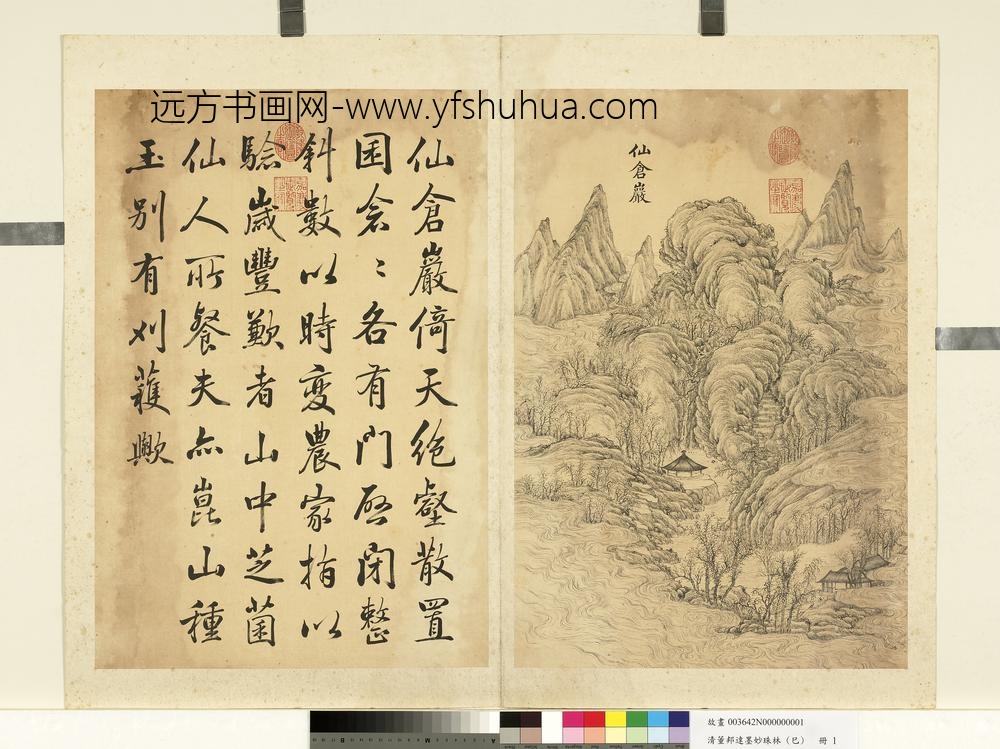 远方书画网-www.yfshuhua.com
仙倉巖
仙倉巖倚天絶壑散置
囷倉〻各有門啓閉整
斜數以時變農家指以
驗歲豐歉者山中芝菌
仙人所餐夫亦崑山種
玉別有刈蔉歟
故畫 003642N000000001
清董邦達墨妙珠林（巳） 冊 1